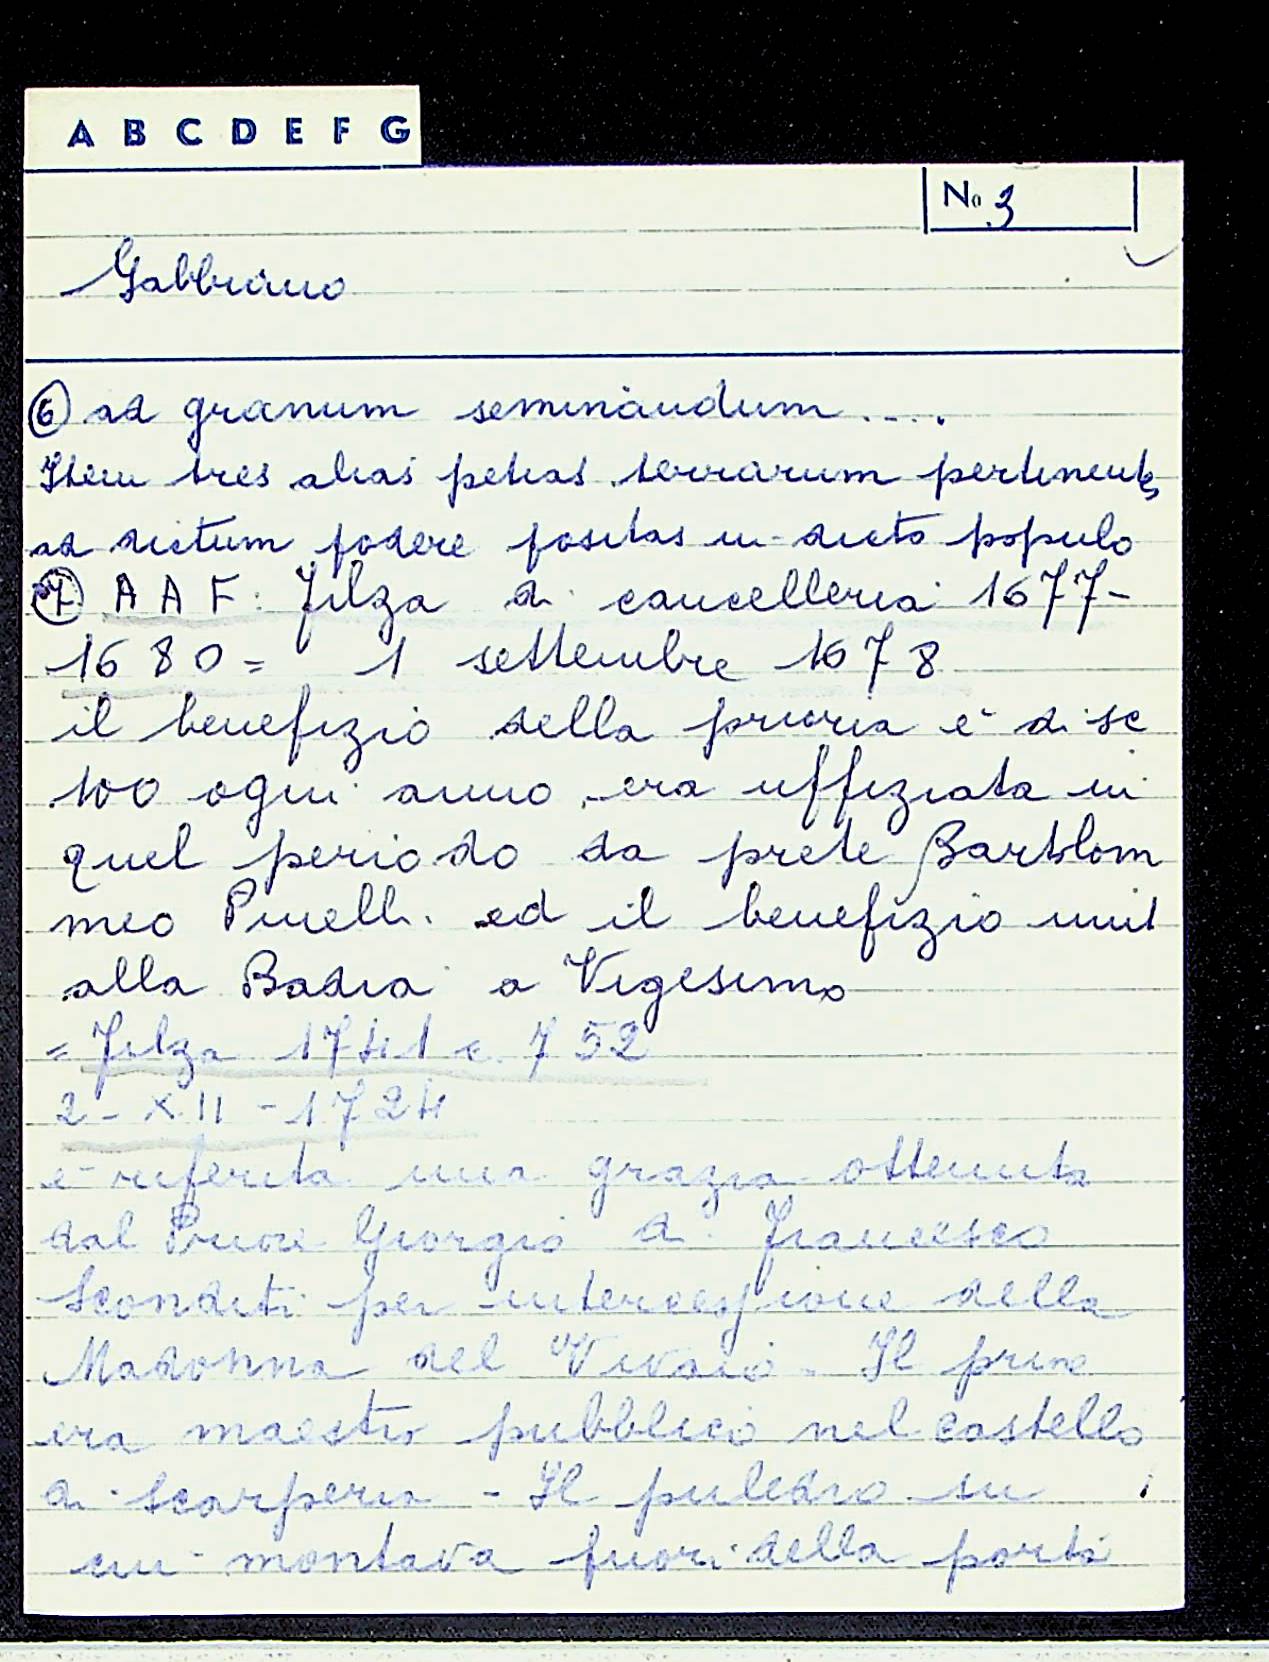 A B C D E F G
No 3
Gabbiano
⑥ ad granum seminandum ....
Item tres alias petias terrarum pertinents
ad dictum podere positas in dicto populo
⑦ A A F. Filza di cancelleria 1677-
1680 = 1 settembre 1678
il benefizio della prioria è di sc
100 ogni anno, era uffiziata in
quel periodo da prete Bartolom
meo Pinelli. ed il benefizio unit
alla Badia a Vigesimo
= Filza 1741 c. 752
2 - XII - 1724
è riferita una grazia ottenuta
dal Priore Giorgio di Francesco
Sconditi per intercessione della
Madonna del Vivaio - Il prior
era maestro pubblico nel castello
di Scarperia - Il puledro su
cui montava fuori della porta